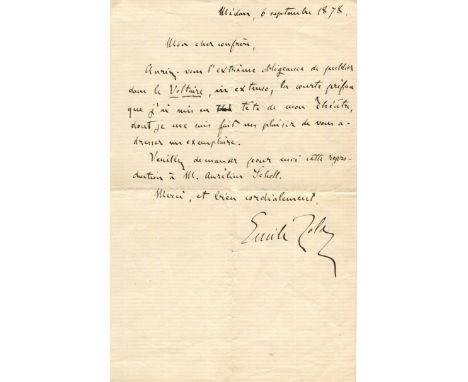 Médan, 6 septembre 1878.
Mon cher confrère,
Auriez-vous l'extrême obligeance de publier
dans le Voltaire, in extenso, la courte préface
que j'ai mis en tête de mon Théâtre,
dont je me suis fait un plaisir de vous a-
dresser un exemplaire.
Veuillez demander pour moi cette repro-
duction à M. Aurélien Scholl.
Merci, et bien cordialement.
Emile Zola